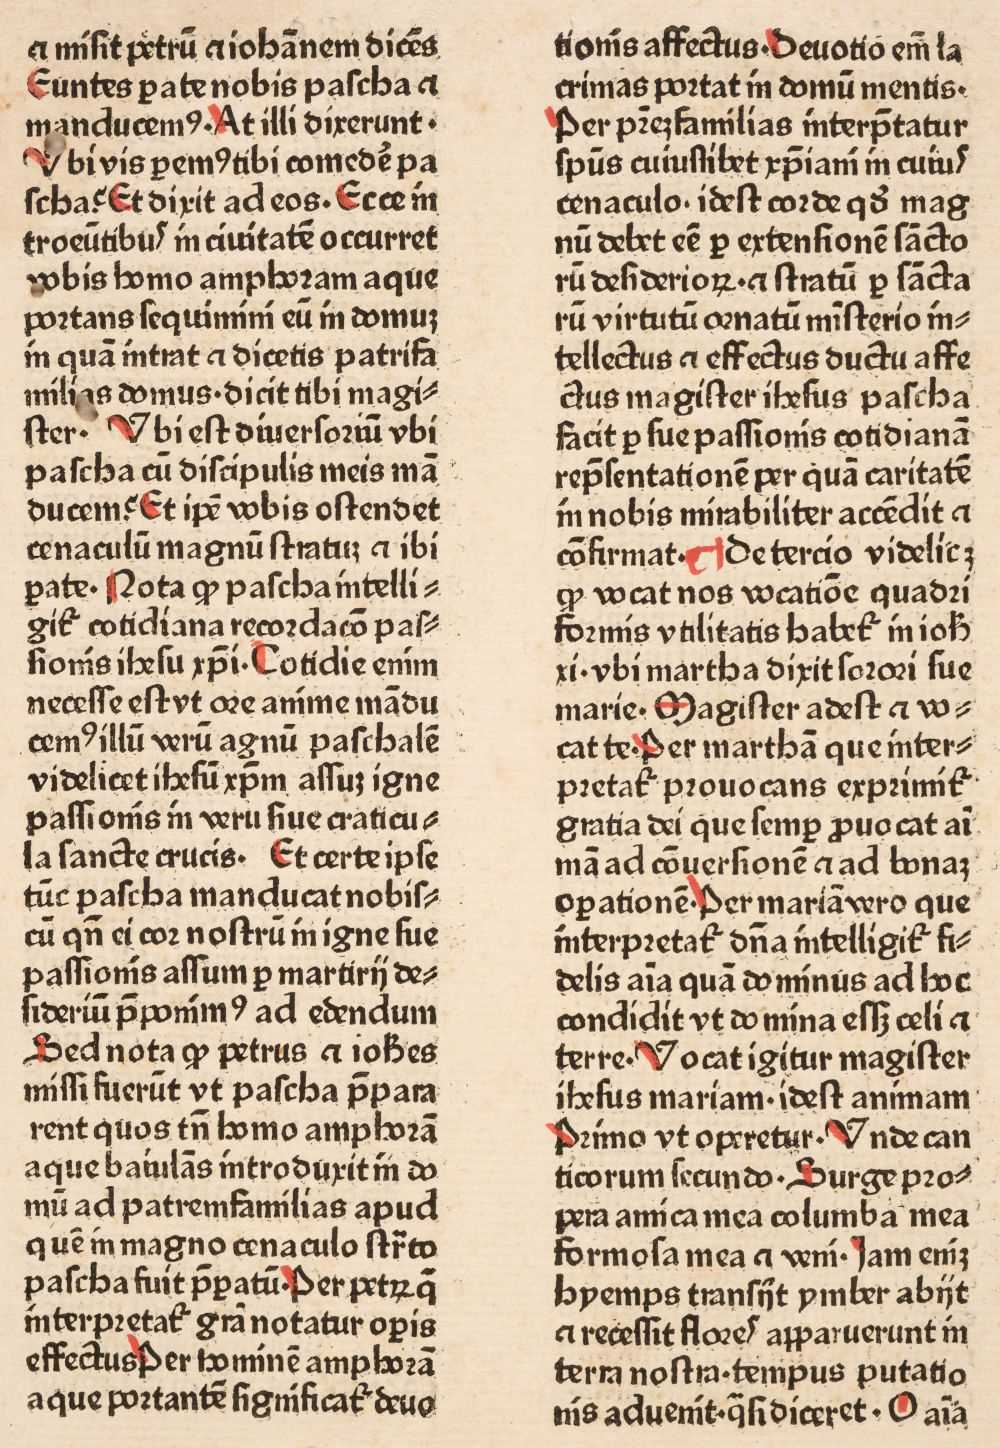 ⁊ misit petrū ⁊ iohānem dicēs
Euntes ꝑate nobis pascha ⁊
manducemꝰ. At illi dixerunt.
Vbi vis ꝑemꝰ tibi comedē pa
scha? Et dixit ad eos. Ecce in
troeūtibus in ciuitatē occurret
vobis homo amphoram aque
portans sequimini eū in domuꝫ
in quā intrat ⁊ dicetis patrifa
milias domus. dicit tibi magi-
ster. Vbi est diuersoriū vbi
pascha cū discipulis meis mā
ducem? Et ipē vobis ostendet
cenaculū magnū stratuꝫ ⁊ ibi
ꝑate. Nota ꝙ pascha intelli-
git᷑ cotidiana recordacō pas-
sionis ihesu xp̄i. Cotidie enim
necesse est vt ore anime mādu
cemꝰ illū verū agnū paschalē
videlicet ihesū xp̄m assuꝫ igne
passionis in veru siue craticu-
la sancte crucis. Et certe ipse
tūc pascha manducat nobis-
cū qn̄ ei cor nostrū in igne sue
passionis assum ꝑ martirij de-
sideriū p̄ponimꝰ ad edendum
Sed nota ꝙ petrus ⁊ ioh̄es
missi fuerūt vt pascha p̄para
rent quos tn̄ homo amphorā
aque baiulās introduxit in do
mū ad patremfamilias apud
quē in magno cenaculo str̄to
pascha fuit p̄ꝑatū. Per petꝝ q̄
interpretat᷑ grā notatur oꝑis
effectus Per hominē amphorā
aque portantē significat᷑ deuo
tionis affectus. Deuotio em̄ la
crimas portat in domū mentis.
Per pr̄eꝫfamilias interp̄tatur
sp̄us cuiuslibet xp̄iani in cuius
cenaculo. idest corde qđ mag
nū debet eē ꝑ extensionē sācto
rū desiderioꝝ. ⁊ stratū ꝑ sācta
rū virtutū ornatū mīsterio in-
tellectus ⁊ effectus ductu affe
ctus magister ihesus pascha
facit ꝑ sue passionis cotidianā
rep̄sentationē per quā caritatē
in nobis mirabiliter accēdit ⁊
cōfirmat. ¶ De tercio videlicꝫ
ꝙ vocat nos vocatiōe quadri
formis vtilitatis habet᷑ in ioh̄
xi. vbi martha dixit sorori sue
marie. Magister adest ⁊ vo-
cat te. Per marthā que inter-
pretat᷑ prouocans exprimit᷑
gratia dei que semꝑ ꝓuocat ai
mā ad cōuersionē ⁊ ad bonaꝫ
oꝑationē. Per mariā vero que
interpretat᷑ dn̄a intelligit᷑ fi-
delis aīa quā dominus ad hoc
condidit vt domina essꝫ celi ⁊
terre. Vocat igitur magister
ihesus mariam. idest animam
Primo vt operetur. Vnde can
ticorum secundo. Surge pro-
pera amica mea columba mea
formosa mea ⁊ veni. Iam eniꝫ
hyemps transijt ymber abijt
⁊ recessit flores apparuerunt in
terra nostra. tempus putatio
nis aduenit. q̄si diceret. O aīa